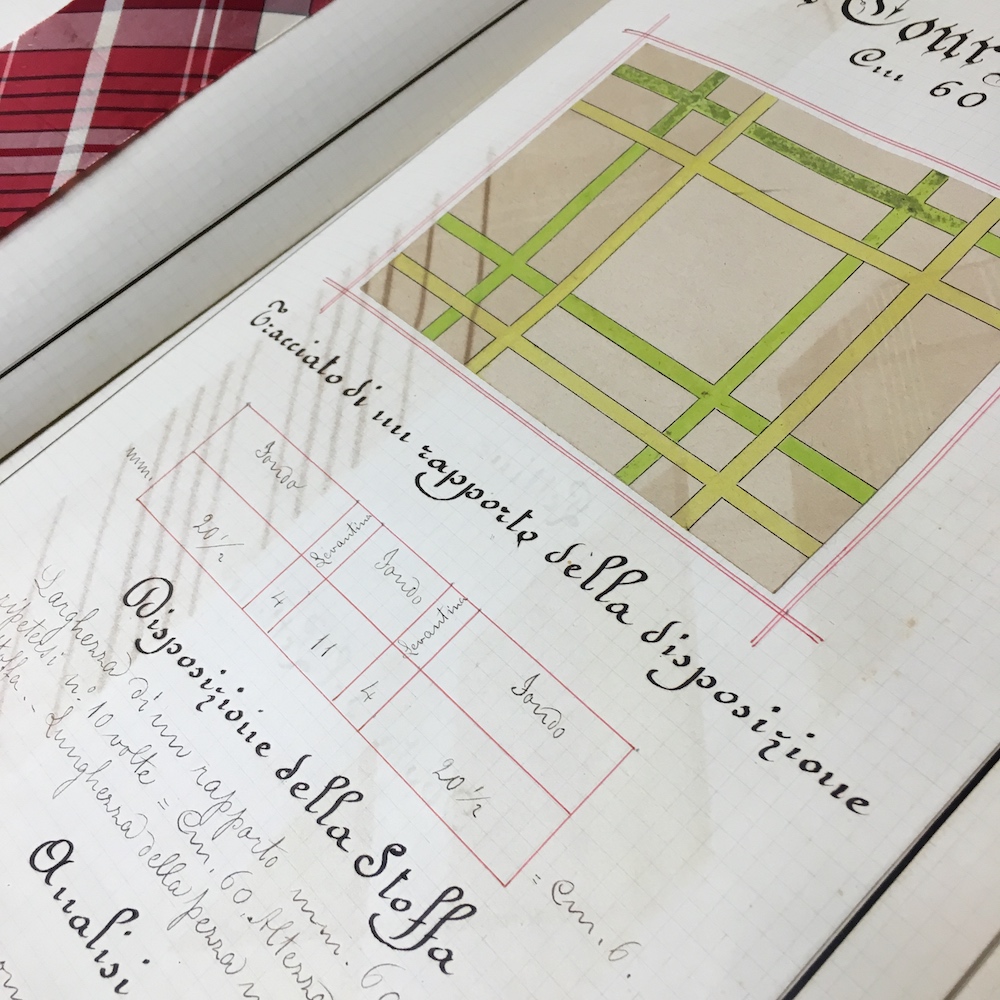 Cour
Cm 60
Tracciato di un rapporto della disposizione
mm.
Fondo
Levantina
Fondo
Levantina
Fondo
20 ½
4
11
4
20 ½
= Cm. 6.
Disposizione della Stoffa
Larghezza di un rapporto mm. 60
ripetesi n.º 10 volte = Cm. 60. Altezza
Stoffa. - Lunghezza della pezza
Analisi